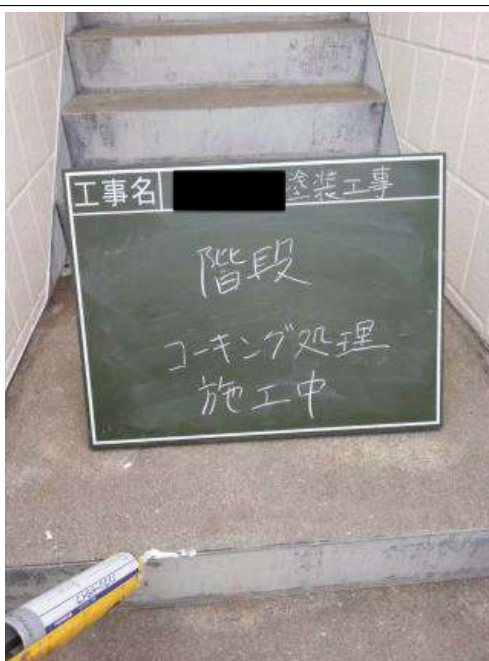 工事名 塗装工事
階段
コーキング処理
施工中